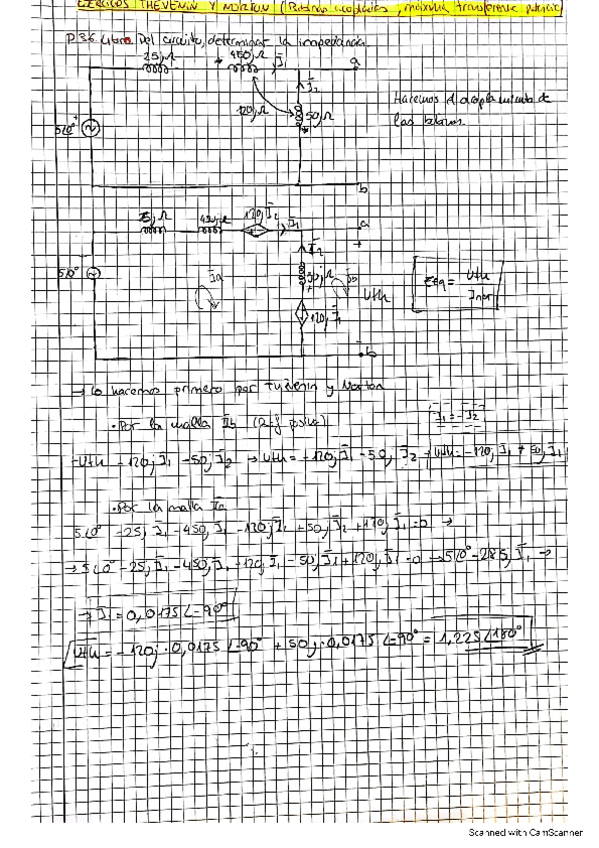 EJERCICIOS THEVENIN Y NORTON (Bobinas acopladas, máxima transferencia potencia)
P.36. Libro. Del circuito, determinar la impedancia.
25jΩ 450jΩ I1 a
I2
120jΩ 50jΩ
Hacemos el acoplamiento de
las bobinas.
5∠0°
b
25jΩ 450jΩ 120jI2 I1 a
I2
5∠0° Ia 50jΩ Ib Uth
Zeq = Uth / Inor
120jI1
b
→ Lo hacemos primero por Thévenin y Norton
• Por la malla Ib
I1 = -I2
-Uth - 120jI1 - 50jI2 → Uth = -120jI1 - 50jI2 → Uth = -120jI1 + 50jI1
• Por la malla Ia
5∠0° - 25jI1 - 450jI1 - 120jI2 + 50jI2 + 120jI1 = 0 →
→ 5∠0° - 25jI1 - 450jI1 + 120jI1 - 50jI1 + 120jI1 = 0 → 5∠0° - 285jI1 →
→ I1 = 0,0175∠-90°
Uth = -120j · 0,0175∠-90° + 50j · 0,0175∠-90° = 1,225∠180°
Scanned with CamScanner